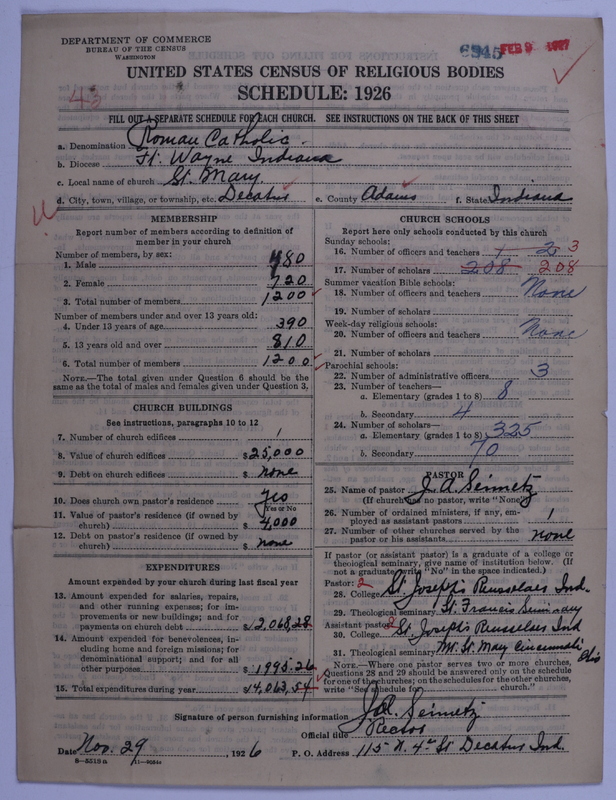 DEPARTMENT OF COMMERCE
BUREAU OF THE CENSUS
WASHINGTON
6945 FEB 9 1927
UNITED STATES CENSUS OF RELIGIOUS BODIES
SCHEDULE: 1926
43
FILL OUT A SEPARATE SCHEDULE FOR EACH CHURCH. SEE INSTRUCTIONS ON THE BACK OF THIS SHEET
a. Denomination Roman Catholic
b. Diocese Ft. Wayne Indiana
c. Local name of church St. Mary
d. City, town, village, or township, etc. Decatur e. County Adams f. State Indiana
MEMBERSHIP
Report number of members according to definition of
member in your church
Number of members, by sex:
1. Male 480
2. Female 720
3. Total number of members 1200
Number of members under and over 13 years old:
4. Under 13 years of age 390
5. 13 years old and over 810
6. Total number of members 1200
NOTE.—The total given under Question 6 should be the
same as the total of males and females given under Question 3.
CHURCH BUILDINGS
See instructions, paragraphs 10 to 12
7. Number of church edifices 1
8. Value of church edifices $25,000
9. Debt on church edifices $ none
10. Does church own pastor's residence yes
Yes or No
11. Value of pastor's residence (if owned by
church) $4,000
12. Debt on pastor's residence (if owned by
church) $ none
EXPENDITURES
Amount expended by your church during last fiscal year
13. Amount expended for salaries, repairs,
and other running expenses; for im-
provements or new buildings; and for
payments on church debt $12,068,28
14. Amount expended for benevolences, in-
cluding home and foreign missions; for
denominational support; and for all
other purposes $1995.26
15. Total expenditures during year $14,063,54
CHURCH SCHOOLS
Report here only schools conducted by this church
Sunday schools:
16. Number of officers and teachers 3
17. Number of scholars 208 208
Summer vacation Bible schools:
18. Number of officers and teachers None
19. Number of scholars
Week-day religious schools:
20. Number of officers and teachers None
21. Number of scholars
Parochial schools:
22. Number of administrative officers 3
23. Number of teachers—
a. Elementary (grades 1 to 8) 8
b. Secondary 4
24. Number of scholars—
a. Elementary (grades 1 to 8) 325
b. Secondary 70
PASTOR
25. Name of pastor J. A. Seimetz
(If church has no pastor, write "None")
26. Number of ordained ministers, if any, em-
ployed as assistant pastors 1
27. Number of other churches served by the
pastor or his assistants none
If pastor (or assistant pastor) is a graduate of a college or
theological seminary, give name of institution below. (If
not a graduate write "No" in the space indicated.)
Pastor: 2
28. College St. Joseph's Rensselaer Ind.
29. Theological seminary St. Francis Seminary
Assistant pastor: 2
30. College St. Joseph's Rensselaer Ind
31. Theological seminary Mt. St. Mary Cincinnati Ohio
NOTE.—Where one pastor serves two or more churches,
Questions 28 and 29 should be answered only on the schedule
for one of the churches; on the schedules for the other churches,
write "See schedule for church."
Signature of person furnishing information J. A. Seimetz
Official title Rector
Date Nov. 29, 1926 P. O. Address 115 N. 4th St Decatur Ind.
8—5519a 11—9064a